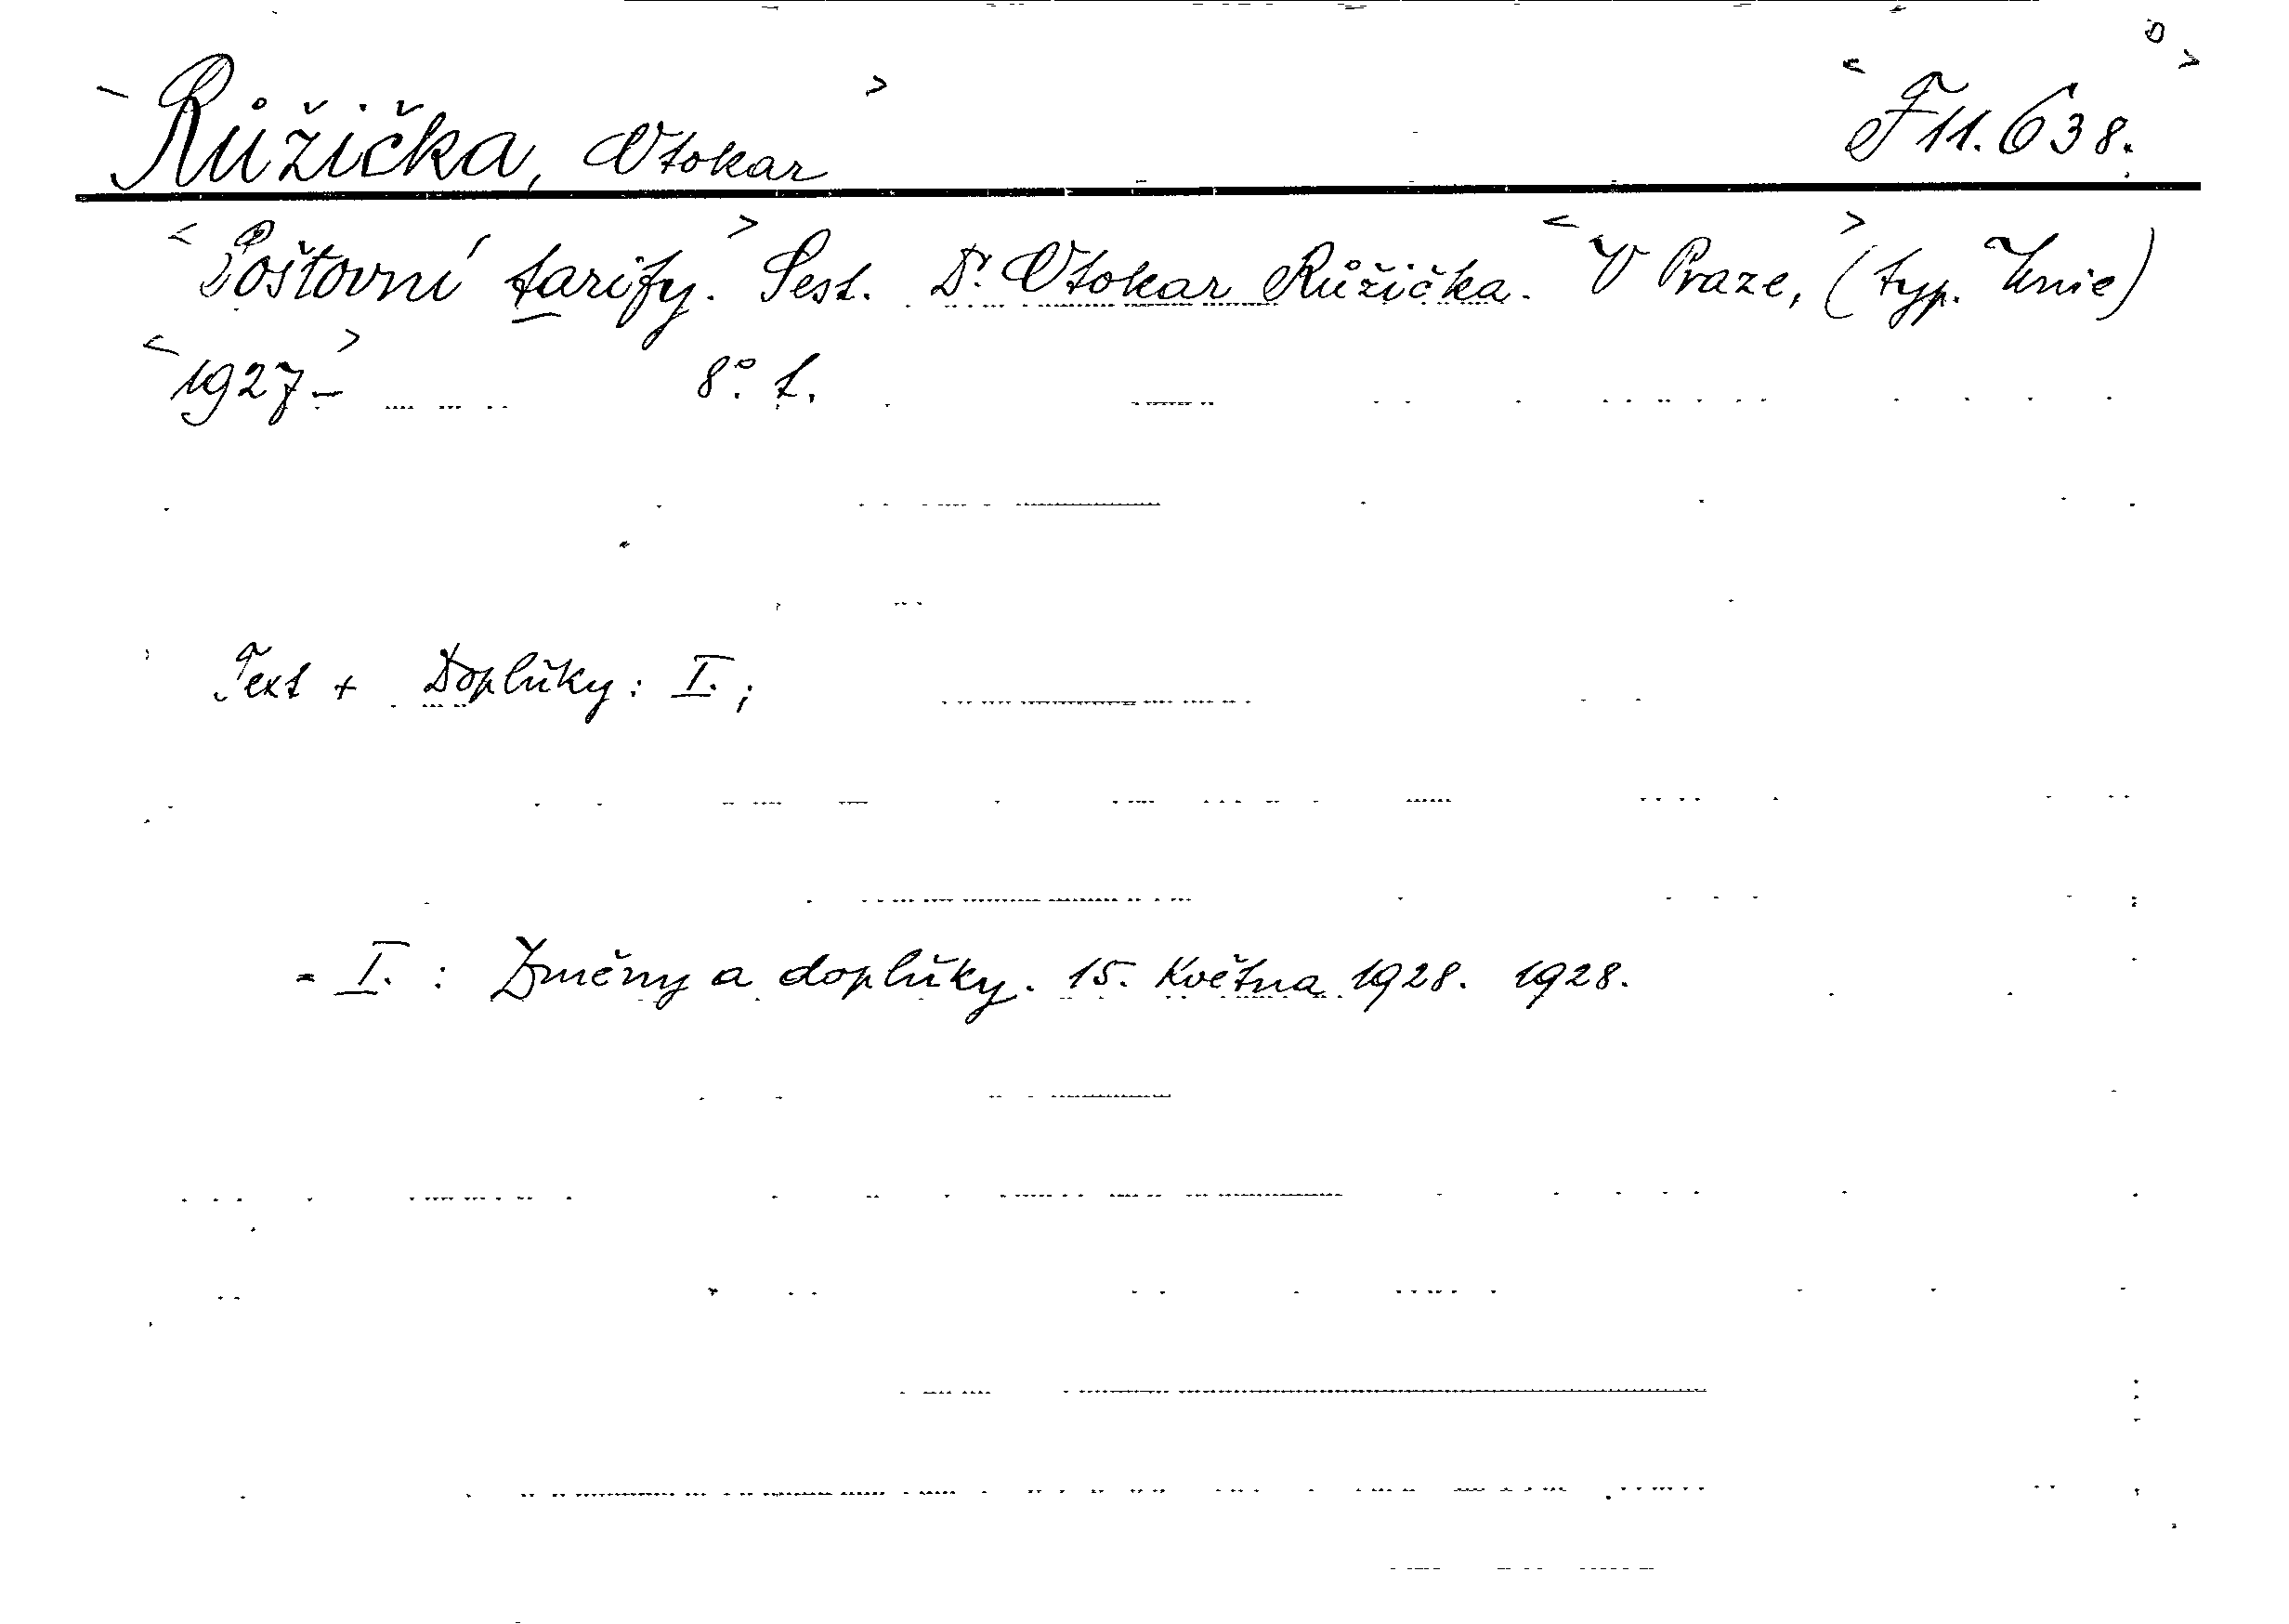 < Růžička, Otokar > < F 11.638. >
< Poštovní tarify. > Sest. Dr. Otokar Růžička. < V Praze, > (typ. Unie)
< 1927- > 8°. t.
Text + Doplňky: I.;
- I. : Změny a doplňky. 15. května 1928. 1928.